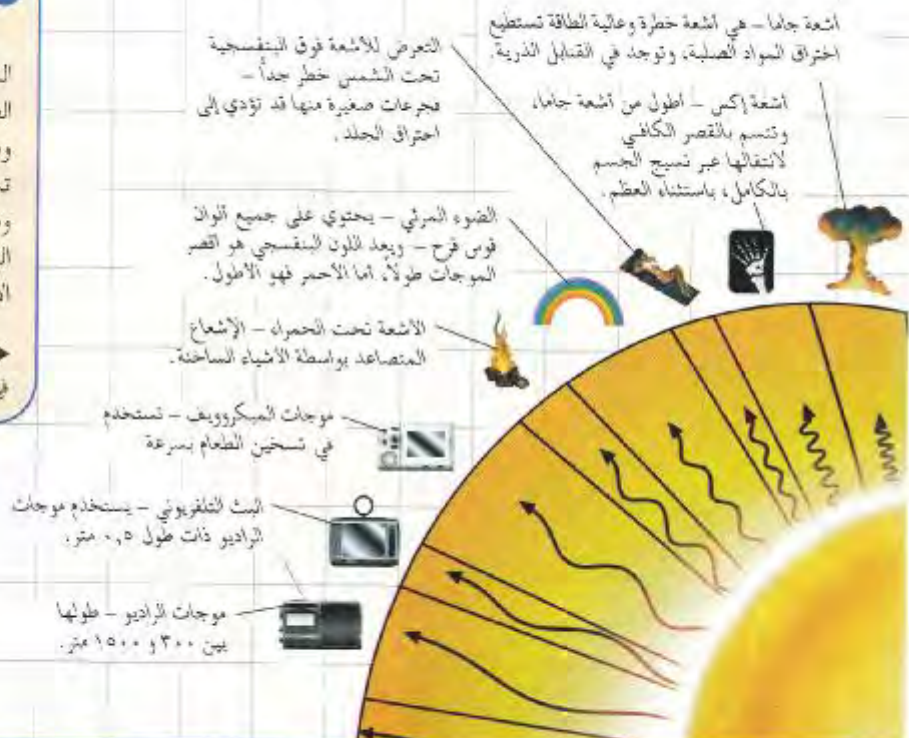 أشعة جاما – هي أشعة خطرة وعالية الطاقة تستطيع
اختراق المواد الصلبة، وتوجد في القنابل الذرية.
أشعة إكس – أطول من أشعة جاما،
وتتسم بالقصر الكافي
لانتقالها عبر نسيج الجسم
بالكامل، باستثناء العظم.
التعرض للأشعة فوق البنفسجية
تحت الشمس خطر جداً –
فجرعات صغيرة منها قد تؤدي إلى
احتراق الجلد.
الضوء المرئي – يحتوي على جميع ألوان
قوس قزح – ويعد اللون البنفسجي هو أقصر
الموجات طولاً، أما الأحمر فهو الأطول.
الأشعة تحت الحمراء – الإشعاع
المتصاعد بواسطة الأشياء الساخنة.
موجات الميكروويف – تستخدم
في تسخين الطعام بسرعة
البث التلفزيوني – يستخدم موجات
الراديو ذات طول ٠,٥ متر.
موجات الراديو – طولها
بين ٣٠٠ و ١٥٠٠ متر.